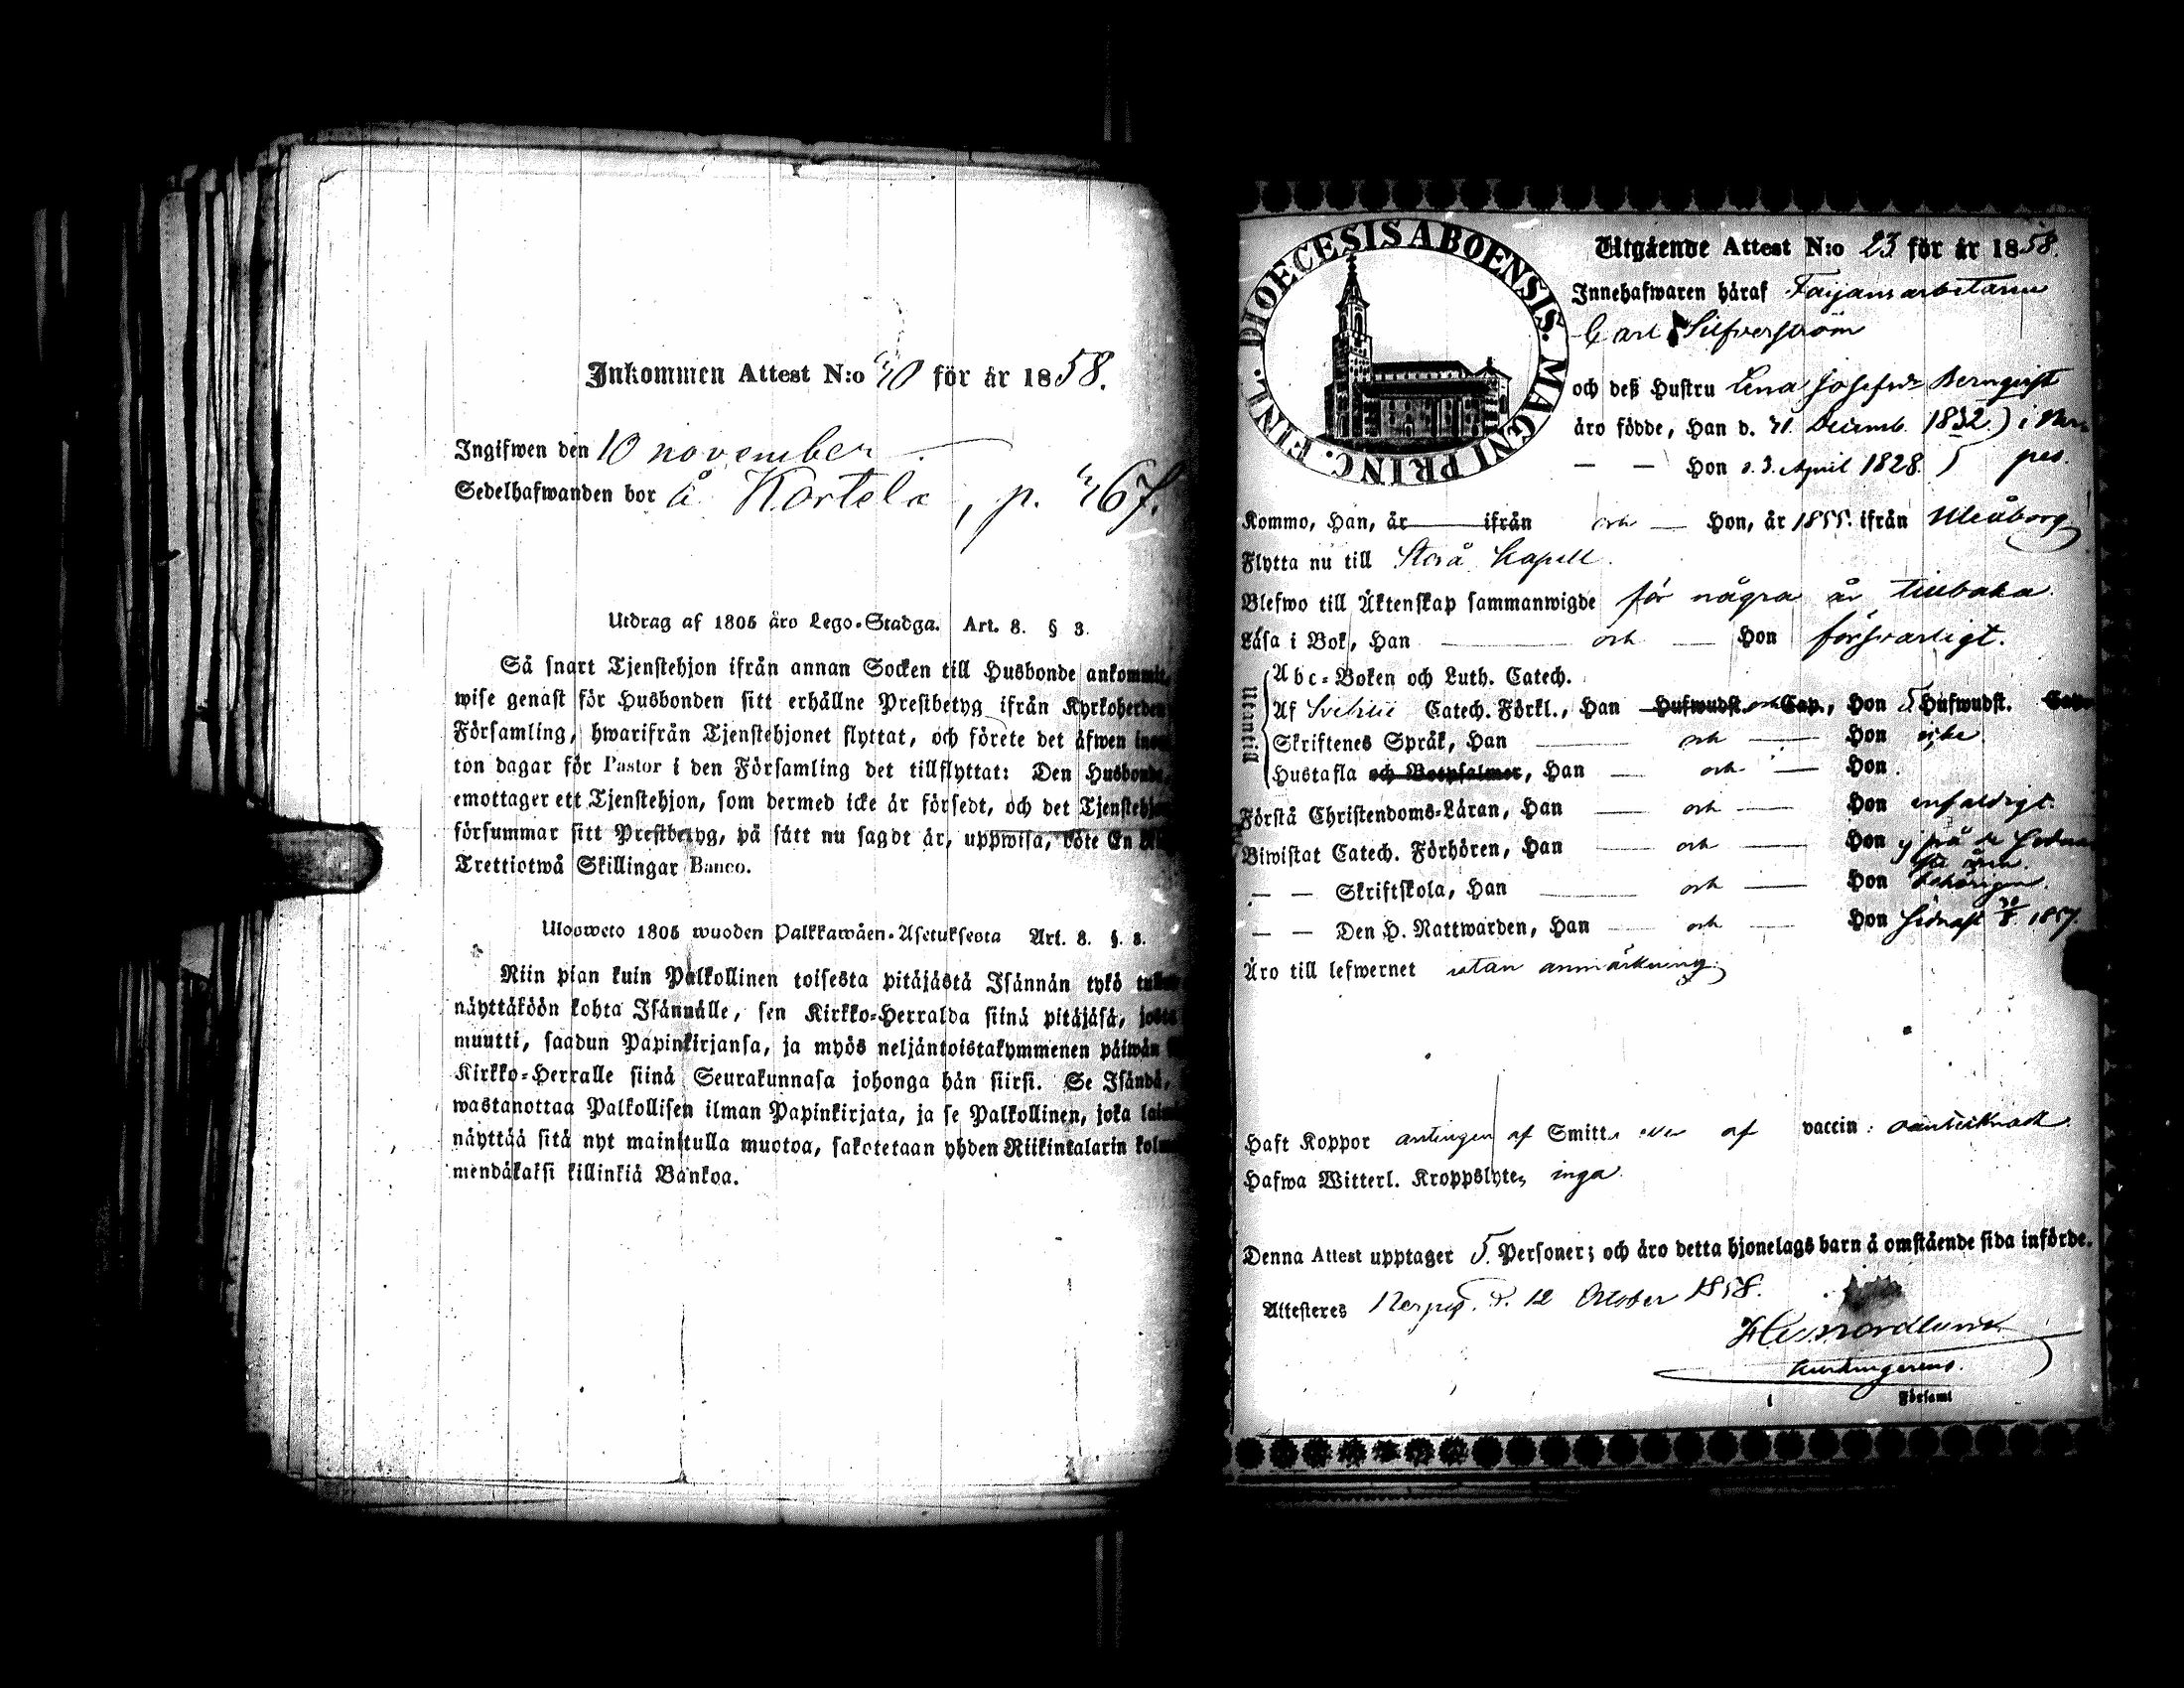 Inkommen Attest N:o 40 för år 1858.
Ingifwen den 10 november
Sedelhafwanden bor å Kartela, p. 467.
Utdrag af 1805 års Lego-Stadga. Art. 8. § 3.
Så snart Tjenstehjon ifrån annan Socken till Husbonde ankommit,
wise genast för Husbonden sitt erhållne Prestbetyg ifrån Kyrkoherden
Församling, hwarifrån Tjenstehjonet flyttat, och förete det äfwen inom
ton dagar för Pastor i den Församling det tillflyttat: Den Husbonde,
emottager ett Tjenstehjon, som dermed icke är försedt, och det Tjenstehjon
försummar sitt Prestbetyg, på sätt nu sagdt är, uppwisa, böte En
Trettiotwå Skillingar Banco.
Ulosweto 1805 wuoden Palkkawäen-Asetuksesta Art. 8. §. 3.
Niin pian kuin Palkollinen toisesta pitäjästä Isännän tykö
näyttäköön kohta Isännälle, sen Kirkko-Herralda siinä pitäjäsä, josta
muutti, saadun Papinkirjansa, ja myös neljäntoistakymmenen päiwän
Kirkko-Herralle siinä Seurakunnasa johonga hän siirsi. Se Isändä,
wastanottaa Palkollisen ilman Papinkirjata, ja se Palkollinen, joka
näyttää sitä nyt mainitulla muotoa, sakotetaan yhden Riikintalarin
mendäkaksi killinkiä Bankoa.
DIOECESIS ABOENSIS. MAGNI PRINC. FINL.
Utgående Attest N:o 23 för år 1858.
Innehafwaren häraf Fajansarbetaren
Carl Silfverström
och deß Hustru Lena Josefina Bernqvist
äro födde, Han d. 21. Decemb. 1832.) i
— — Hon d. 3. April 1828.
Kommo, Han, år ifrån och — Hon, år 1855. ifrån Uleåborg
Flytta nu till Storå Capell.
Blefwo till Äktenskap sammanwigde för några år tillbaka
Läsa i Bok, Han — och — Hon försvarligt.
Utantill
Abc-Boken och Luth. Catech.
Af Svebilii Catech. Förkl., Han Hufwudst. och Cap., Hon 5 Hufwudst.
Skriftenes Språk, Han — och — Hon icke
Hustafla och Botpsalmer, Han — och — Hon
Förstå Christendoms-Läran, Han — och — Hon enfaldigt.
Biwistat Catech. Förhören, Han — och — Hon ej på de
— — Skriftskola, Han — och — Hon behörigen.
— — Den H. Nattwarden, Han — och — Hon sednast 1857.
Äro till lefwernet utan anmärkning.
Haft Koppor antingen af Smitta eller af vaccin: oantecknadt.
Hafwa Witterl. Kroppslyten inga.
Denna Attest upptager 5. Personer; och äro detta hjonelags barn å omstående sida införde.
Attesteres Nerpes. d. 12 October 1858.
Nordlund
i Församl